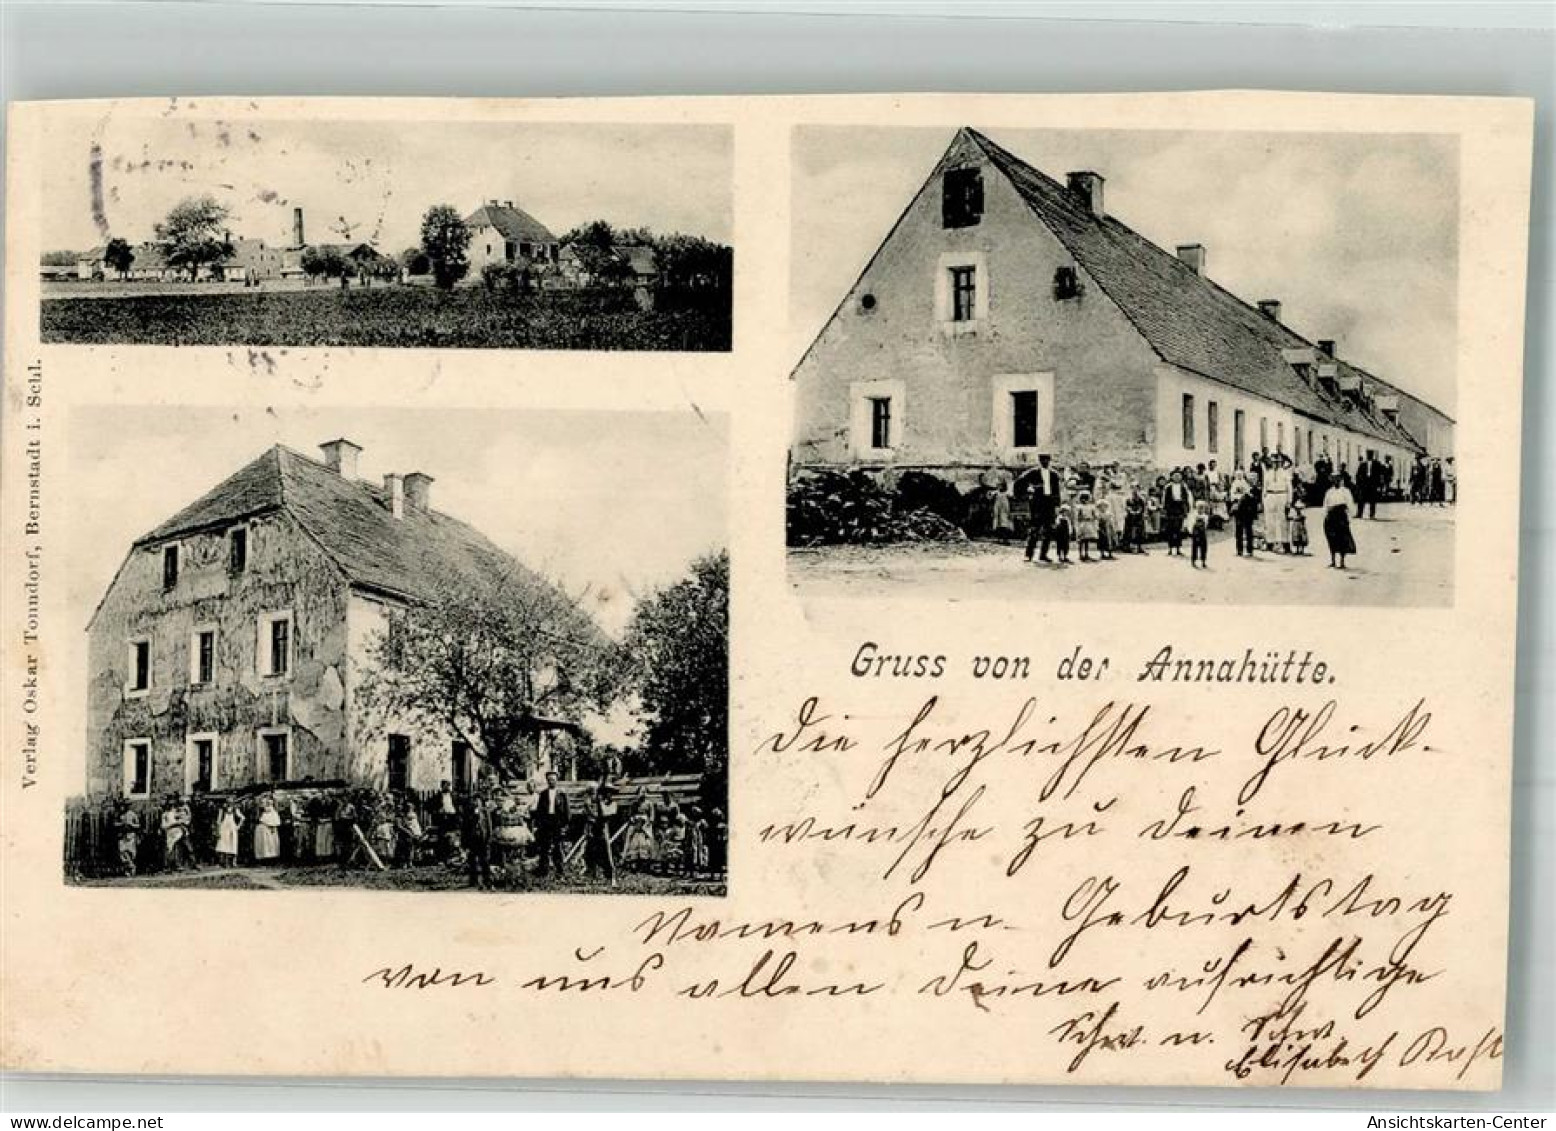 Verlag Oskar Tonndorf, Bernstadt i. Schl.
Gruss von der Annahütte.
Die herzlichsten Glück-
wünsche zu Deinem
Namens u. Geburtstag
von uns allen Deine aufrichtige
Schw. u. Schw.
Elisabeth
Ansichtskarten-Center